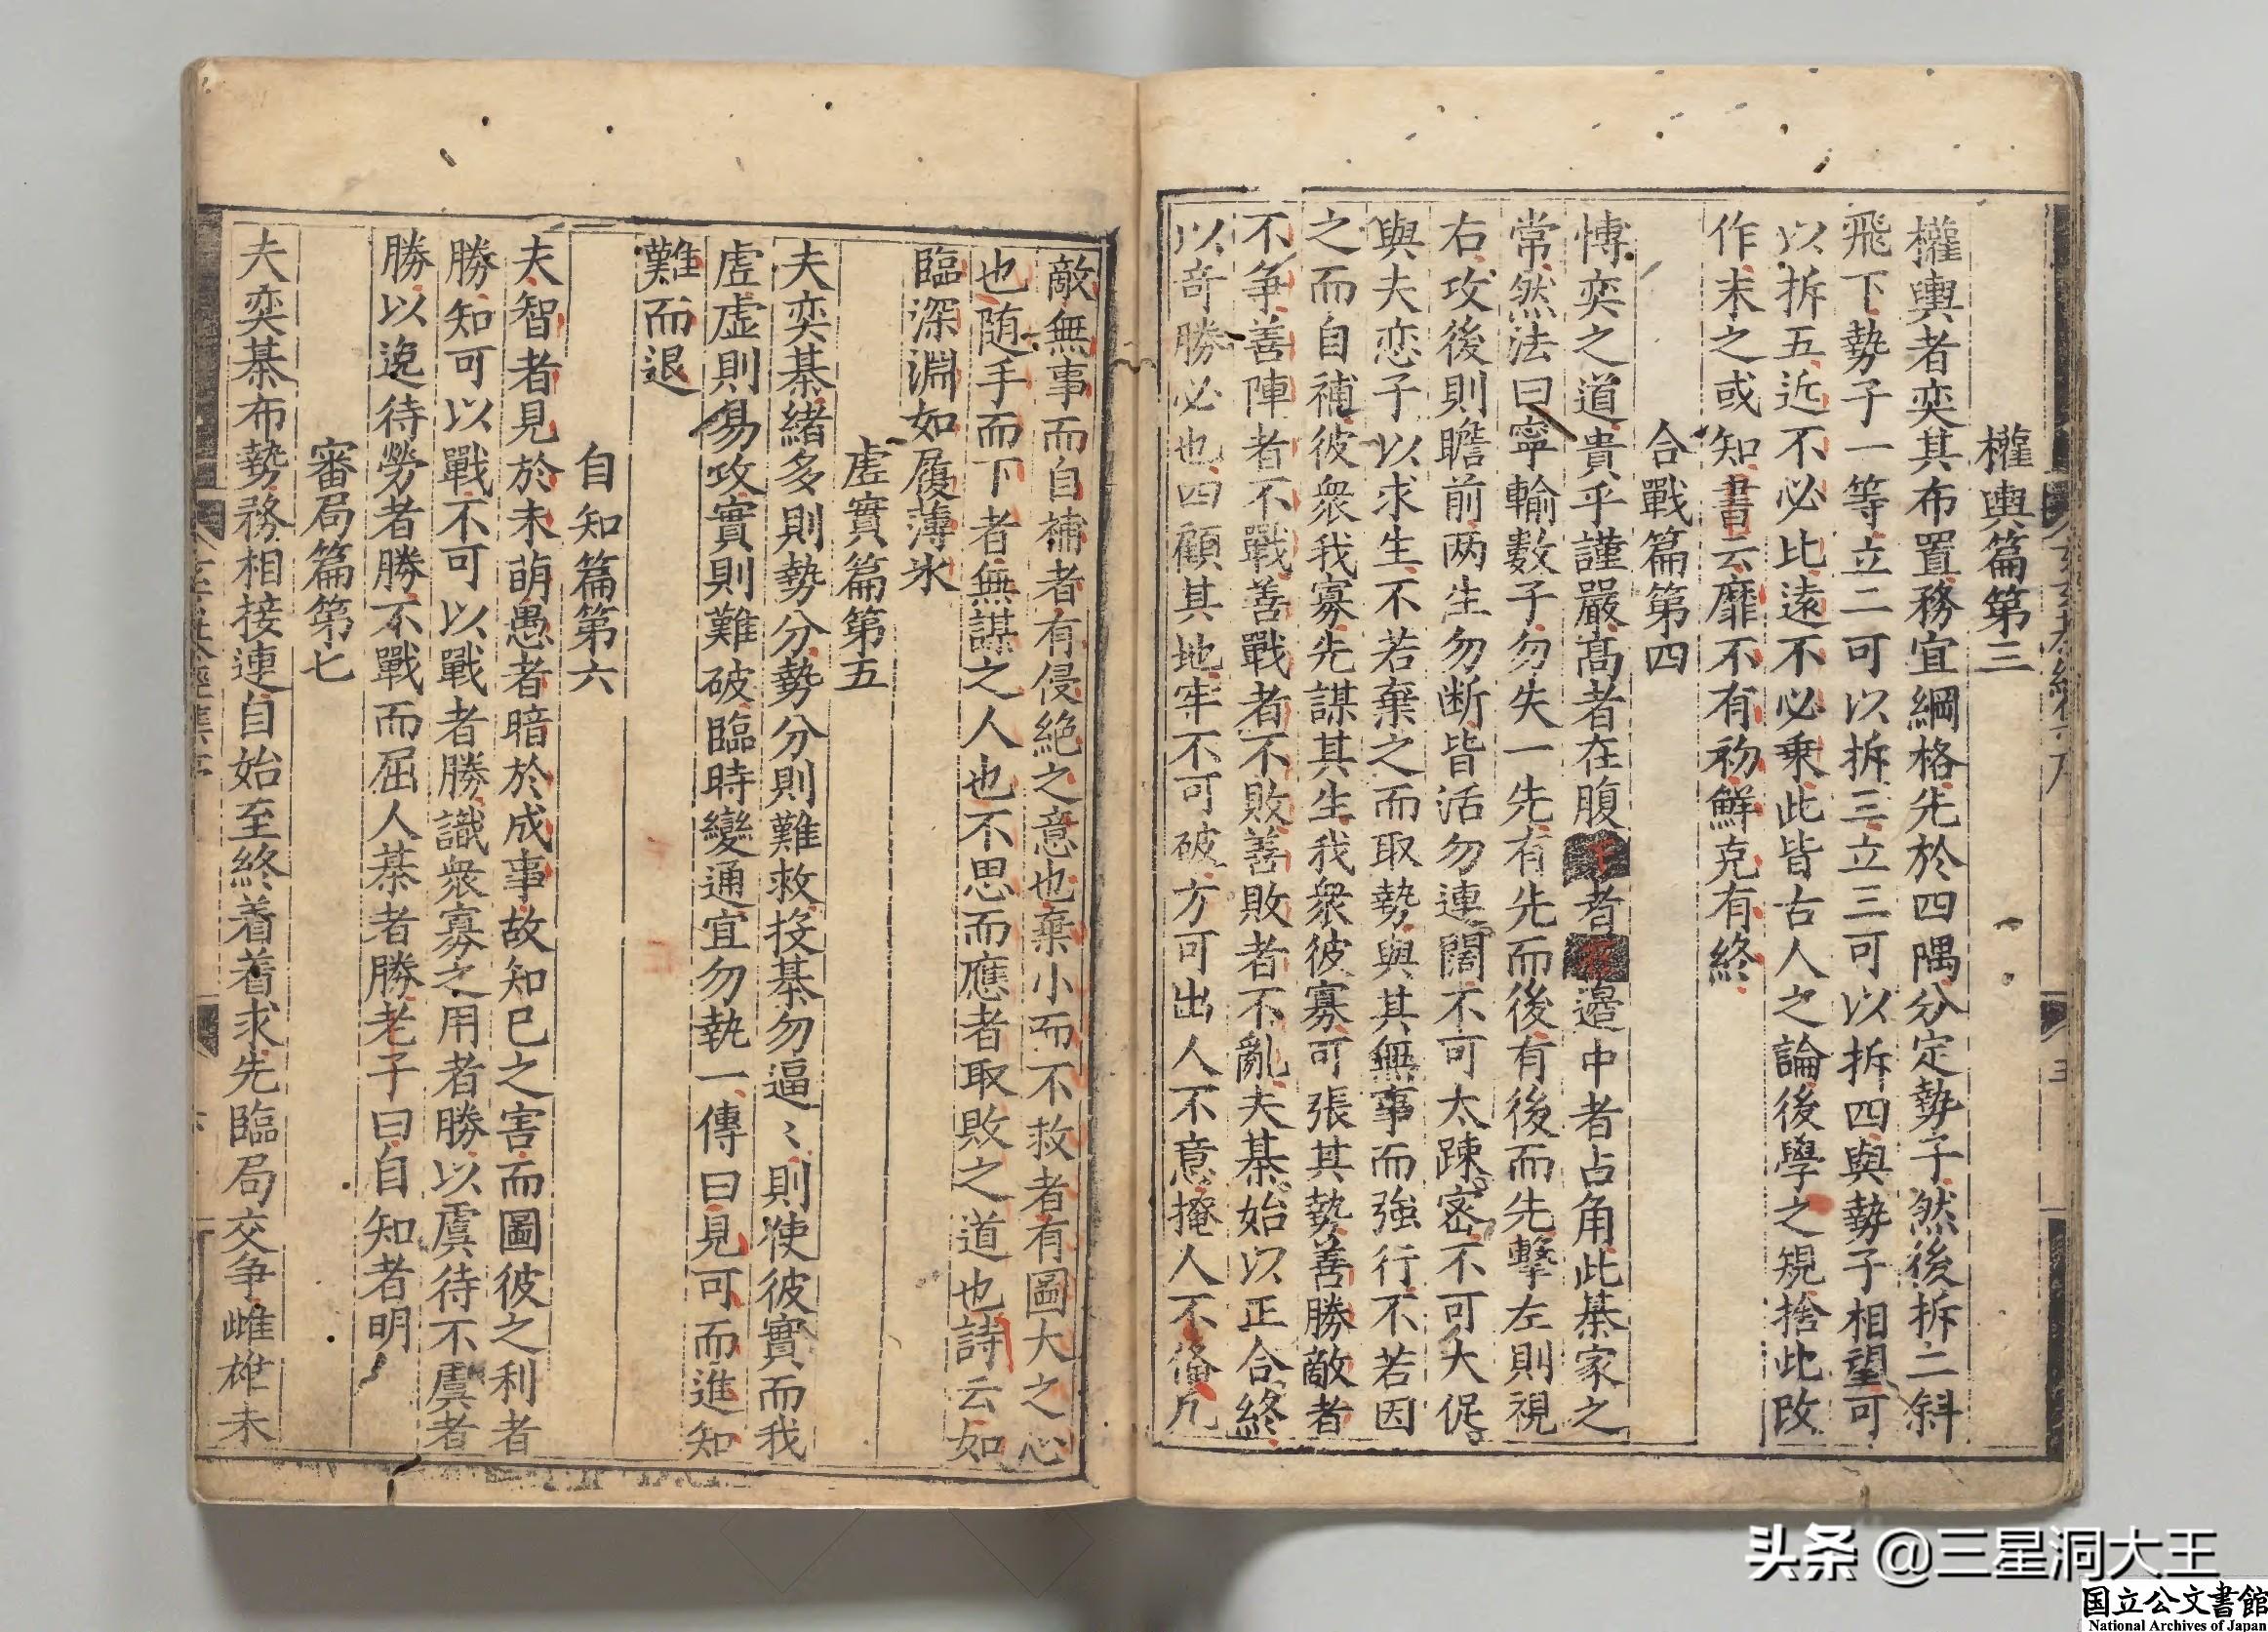 權輿篇第三
權輿者奕其布置務宜綱格先於四隅分定勢子然後拆二斜
飛下勢子一等立二可以拆三立三可以拆四與勢子相望可
以拆五近不必比遠不必乗此皆古人之論後學之規捨此改
作未之或知書云靡不有初鮮克有終
合戰篇第四
博奕之道貴乎謹嚴髙者在腹下者在邉中者占角此棊家之
常然法曰寧輸數子勿失一先有先而後有後而先擊左則視
右攻後則瞻前两生勿断皆活勿連闊不可太踈密不可大促
與夫恋子以求生不若棄之而取勢與其無事而強行不若因
之而自補彼衆我寡先謀其生我衆彼寡可張其勢善勝敵者
不争善陣者不戰善戰者不敗善敗者不亂夫棊始以正合終
以竒勝必也四顧其地牢不可破方可出人不意掩人不俻凡
敵無事而自補者有侵絶之意也棄小而不救者有圖大之心
也随手而下者無謀之人也不思而應者取敗之道也詩云如
臨深淵如履薄氷
虚實篇第五
夫奕棊緒多則勢分勢分則難救投棊勿逼〻則使彼實而我
虚虚則易攻實則難破臨時變通宜勿執一傳曰見可而進知
難而退
自知篇第六
夫智者見於未萌愚者暗於成事故知已之害而圖彼之利者
勝知可以戰不可以戰者勝識衆寡之用者勝以虞待不虞者
勝以逸待勞者勝不戰而屈人棊者勝老子曰自知者明
審局篇第七
夫奕棊布勢務相接連自始至終着着求先臨局交争雌雄未
头条 @三星洞大王
国立公文書館
National Archives of Japan